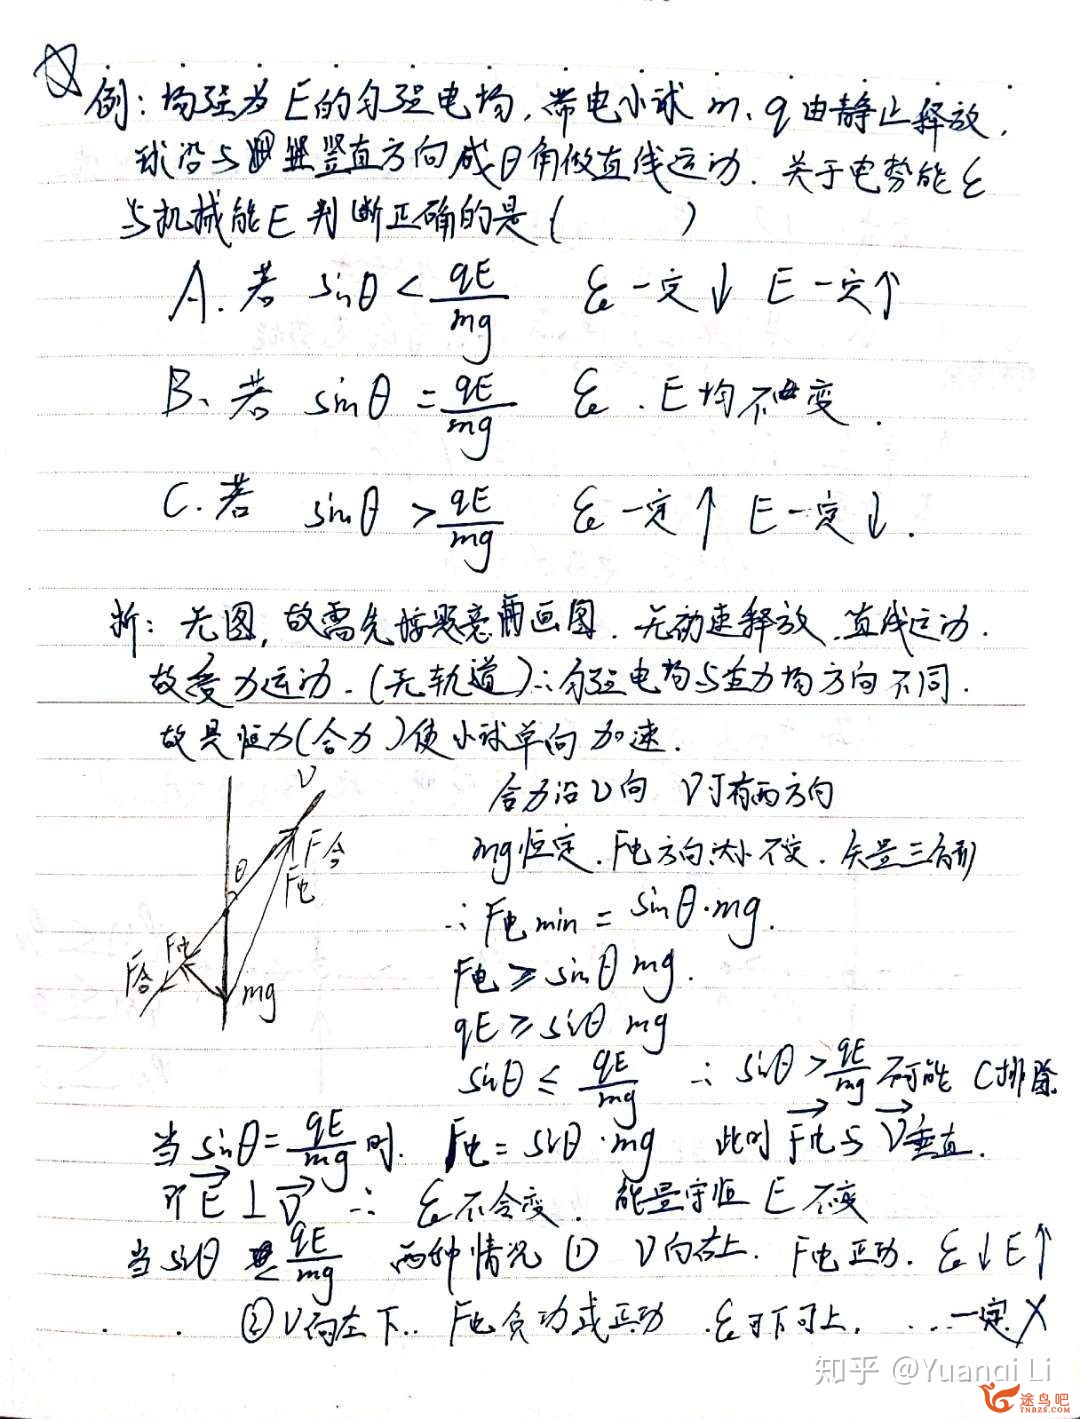 例：场强为E的匀强电场，带电小球 m、q 由静止释放，
球沿与竖直方向成θ角做直线运动．关于电势能ε
与机械能E判断正确的是（　　）
A. 若 sinθ < qE/mg　ε一定↓ E一定↑
B、若 sinθ = qE/mg　ε、E均不变．
C. 若 sinθ > qE/mg　ε一定↑ E一定↓．
析：无图，故需先按题意画图．无初速释放，直线运动．
故受力运动．(无轨道)∴匀强电场与重力场方向不同．
故是恒力(合力)使小球单向加速．
V
θ
F合
F电
F电
F合
mg
合力沿V向 V可有两方向
mg恒定．F电方向、大小不变．矢量三角形
∴F电min = sinθ·mg.
F电 ≥ sinθ mg.
qE ≥ sinθ mg
sinθ ≤ qE/mg ∴ sinθ > qE/mg 不可能 C排除
当 sinθ = qE/mg 时． F电 = sinθ·mg 此时 F电与V垂直．
即 E⊥V ∴ ε不会变．能量守恒 E不变
当 sinθ qE/mg 两种情况 ① V向右上．F电正功．ε↓E↑
②V向左下．．F电负功或正功．ε可下可上．...一定X
知乎 @Yuanqi Li
途鸟吧
TNBZS.COM